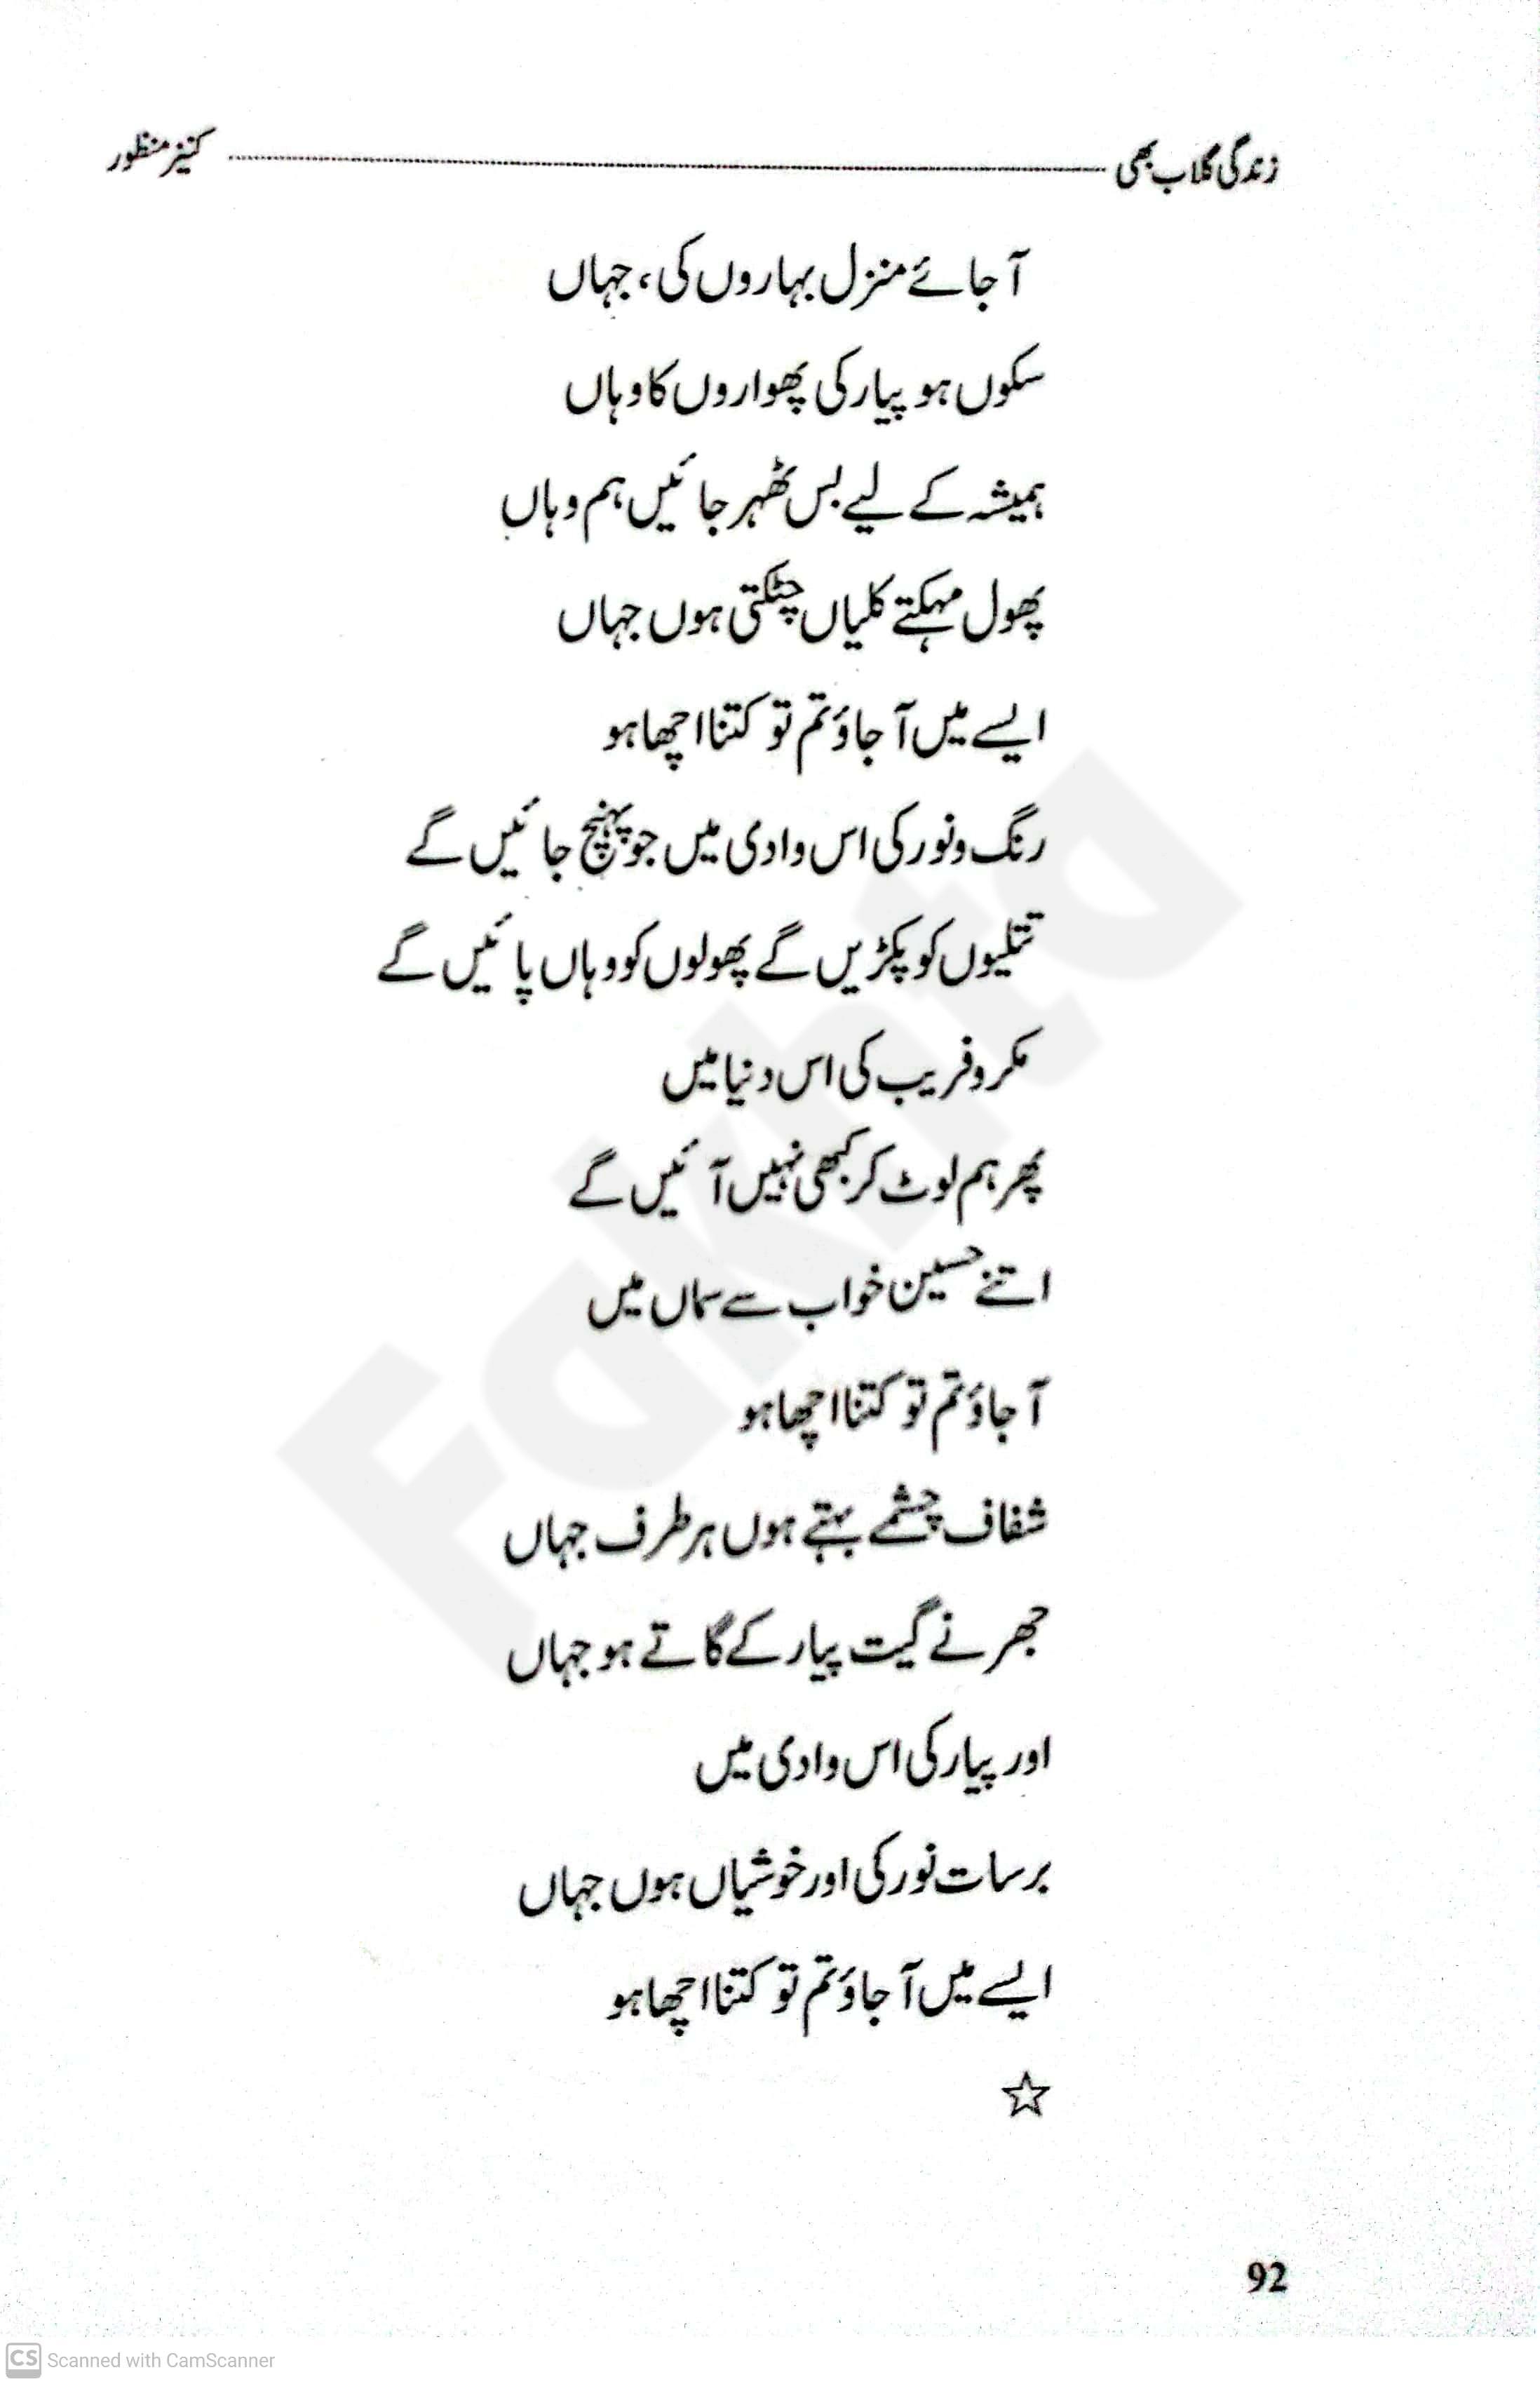 زندگی گلاب بھی ---------- کنیز منظور
آ جائے منزل بہاروں کی، جہاں
سکوں ہو پیار کی پھواروں کا وہاں
ہمیشہ کے لیے بس ٹھہر جائیں ہم وہاں
پھول مہکتے کلیاں چٹکتی ہوں جہاں
ایسے میں آ جاؤ تم تو کتنا اچھا ہو
رنگ و نور کی اس وادی میں جو پہنچ جائیں گے
تتلیوں کو پکڑیں گے پھولوں کو وہاں پائیں گے
مکر و فریب کی اس دنیا میں
پھر ہم لوٹ کر کبھی نہیں آئیں گے
اتنے حسین خواب سے سماں میں
آ جاؤ تم تو کتنا اچھا ہو
شفاف چشمے بہتے ہوں ہر طرف جہاں
جھرنے گیت پیار کے گاتے ہو جہاں
اور پیار کی اس وادی میں
برسات نور کی اور خوشیاں ہوں جہاں
ایسے میں آ جاؤ تم تو کتنا اچھا ہو
☆
92
Fakhta
CS Scanned with CamScanner